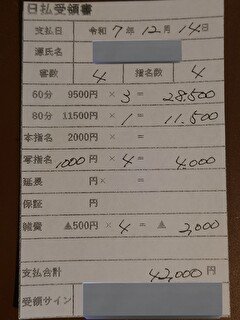 日払受領書
支払日 令和 7 年 12 月 14 日
源氏名
審数 4 指名数 4
60分 9500円 × 3 = 28,500
80分 11500円 × 1 = 11,500
本指名 2000円 × =
写指名 1000 円 × 4 = 4,000
延長 円× =
保証 円
雑費 ▲500円 × 4 = ▲ 2,000
支払合計 42,000 円
受領サイン